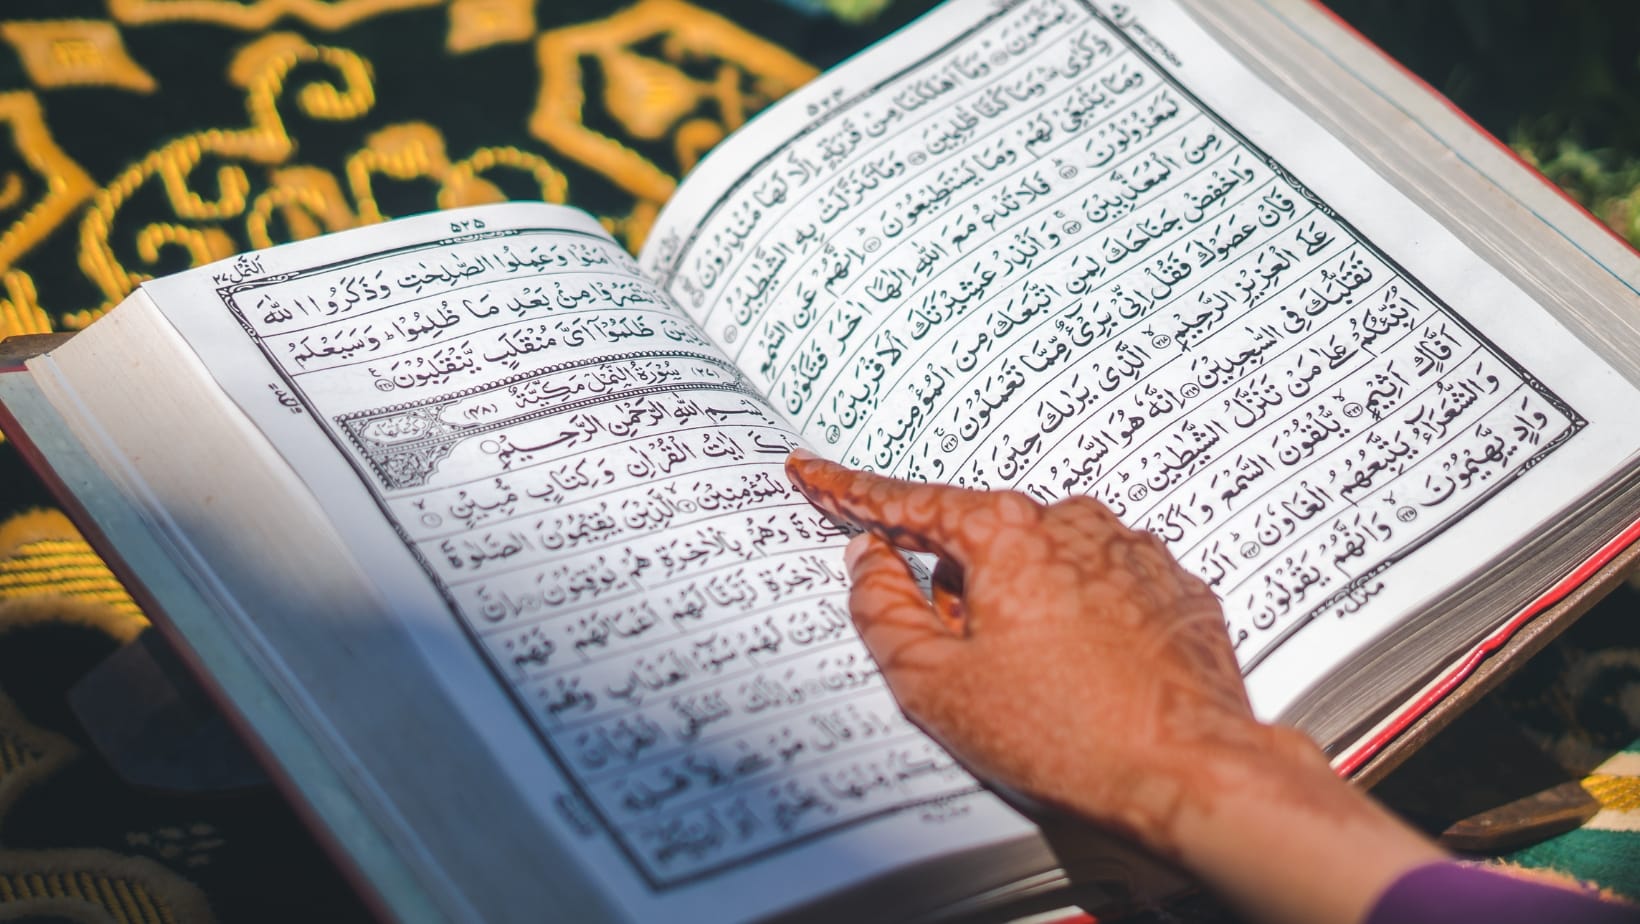 ٥٢٤
يَنْقَلِبُوْنَ وَمَاۤ اَهْلَكْنَا مِنْ قَرْيَةٍ اِلَّا لَهَا مُنْذِرُوْنَ
ذِكْرٰى وَمَا كُنَّا ظٰلِمِيْنَ وَمَا تَنَزَّلَتْ بِهِ الشَّيٰطِيْنُ
وَمَا يَنْۢبَغِيْ لَهُمْ وَمَا يَسْتَطِيْعُوْنَ اِنَّهُمْ عَنِ السَّمْعِ
لَمَعْزُوْلُوْنَ فَلَا تَدْعُ مَعَ اللّٰهِ اِلٰهًا اٰخَرَ فَتَكُوْنَ
مِنَ الْمُعَذَّبِيْنَ وَاَنْذِرْ عَشِيْرَتَكَ الْاَقْرَبِيْنَ
وَاخْفِضْ جَنَاحَكَ لِمَنِ اتَّبَعَكَ مِنَ الْمُؤْمِنِيْنَ
فَاِنْ عَصَوْكَ فَقُلْ اِنِّيْ بَرِيْٓءٌ مِّمَّا تَعْمَلُوْنَ
عَلَى الْعَزِيْزِ الرَّحِيْمِ الَّذِيْ يَرٰىكَ حِيْنَ
تَقَلُّبَكَ فِي السّٰجِدِيْنَ اِنَّهٗ هُوَ السَّمِيْعُ
اُنَبِّئُكُمْ عَلٰى مَنْ تَنَزَّلُ الشَّيٰطِيْنُ
اَفَّاكٍ اَثِيْمٍ يُّلْقُوْنَ السَّمْعَ وَاَكْثَرُ
وَالشُّعَرَآءُ يَتَّبِعُهُمُ الْغَاوٗنَ
وَادٍ يَّهِيْمُوْنَ وَاَنَّهُمْ يَقُوْلُوْنَ
منزل ٥
٥٢٥
النمل ٢٧
اٰمَنُوْا وَعَمِلُوا الصّٰلِحٰتِ وَذَكَرُوا اللّٰهَ
انْتَصَرُوْا مِنْۢ بَعْدِ مَا ظُلِمُوْا وَسَيَعْلَمُ
الَّذِيْنَ ظَلَمُوْۤا اَيَّ مُنْقَلَبٍ يَّنْقَلِبُوْنَ
(٢٧) سُوْرَةُ النَّمْلِ مَكِّيَّةٌ (٤٨)
بِسْمِ اللّٰهِ الرَّحْمٰنِ الرَّحِيْمِ
اٰيٰتُ الْقُرْاٰنِ وَكِتَابٍ مُّبِيْنٍ
لِلْمُؤْمِنِيْنَ الَّذِيْنَ يُقِيْمُوْنَ الصَّلٰوةَ
وَهُمْ بِالْاٰخِرَةِ هُمْ يُوْقِنُوْنَ اِنَّ
بِالْاٰخِرَةِ زَيَّنَّا لَهُمْ اَعْمَالَهُمْ فَهُمْ
الَّذِيْنَ لَهُمْ سُوْٓءُ الْعَذَابِ وَهُمْ
وَاِنَّكَ لَتُلَقَّى الْقُرْاٰنَ
اِذْ قَالَ مُوْسٰى لِاَهْلِهٖ
مِّنْهَا بِخَبَرٍ اَوْ اٰتِيْكُمْ